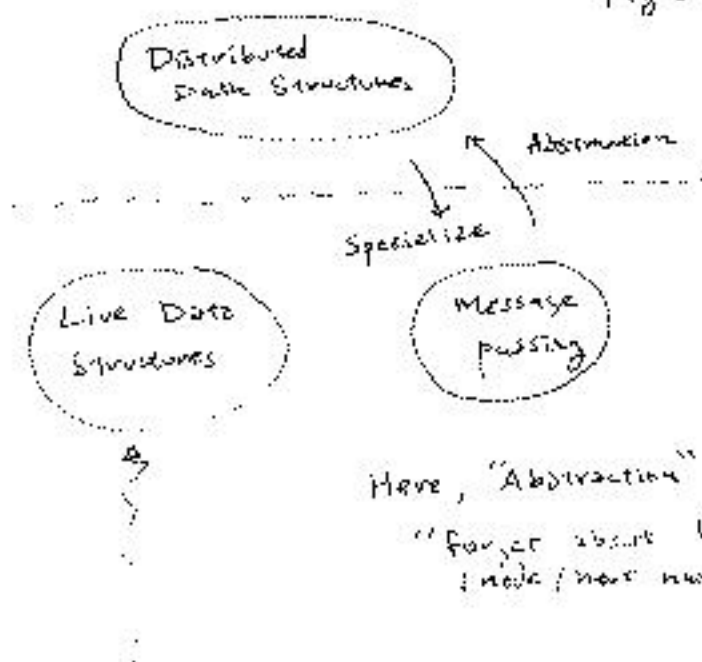 Distributed
Data Structures
Abstraction
Specialize
Live Data
Structures
Message
passing
Here, "Abstraction"
"forget about